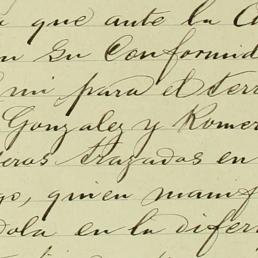 que ante la C
n su Conformid
mi para el terr
Gonzalez y Romer
eros trazados en
go, quien manif
dola en la difer